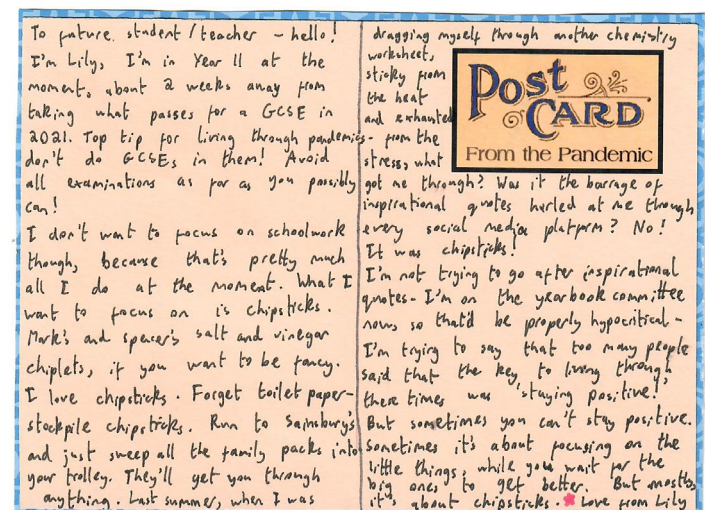 To future student/teacher - hello!
I'm Lily, I'm in Year 11 at the
moment, about 2 weeks away from
taking what passes for a GCSE in
2021. Top tip for living through pandemics-
don't do GCSEs in them! Avoid
all examinations as far as you possibly
can!
I don't want to focus on schoolwork
though, because that's pretty much
all I do at the moment. What I
want to focus on is chipsticks.
Mark's and spencer's salt and vinegar
chiplets, if you want to be fancy.
I love chipsticks. Forget toilet paper-
stockpile chipsticks. Run to Sainsbury's
and just sweep all the family packs into
your trolley. They'll get you through
anything. Last summer, when I was
dragging myself through another chemistry
worksheet,
sticky from
the heat
and exhausted
from the
stress, what
got me through? Was it the barrage of
inspirational quotes hurled at me through
every social media platform? No!
It was chipsticks!
I'm not trying to go after inspirational
quotes- I'm on the yearbook committee
now, so that'd be properly hypocritical -
I'm trying to say that too many people
said that the key to living through
these times was 'staying positive!'
But sometimes you can't stay positive.
Sometimes it's about focusing on the
little things, while you wait for the
big ones to get better. But mostly,
it's about chipsticks. Love from Lily
Post
CARD
From the Pandemic